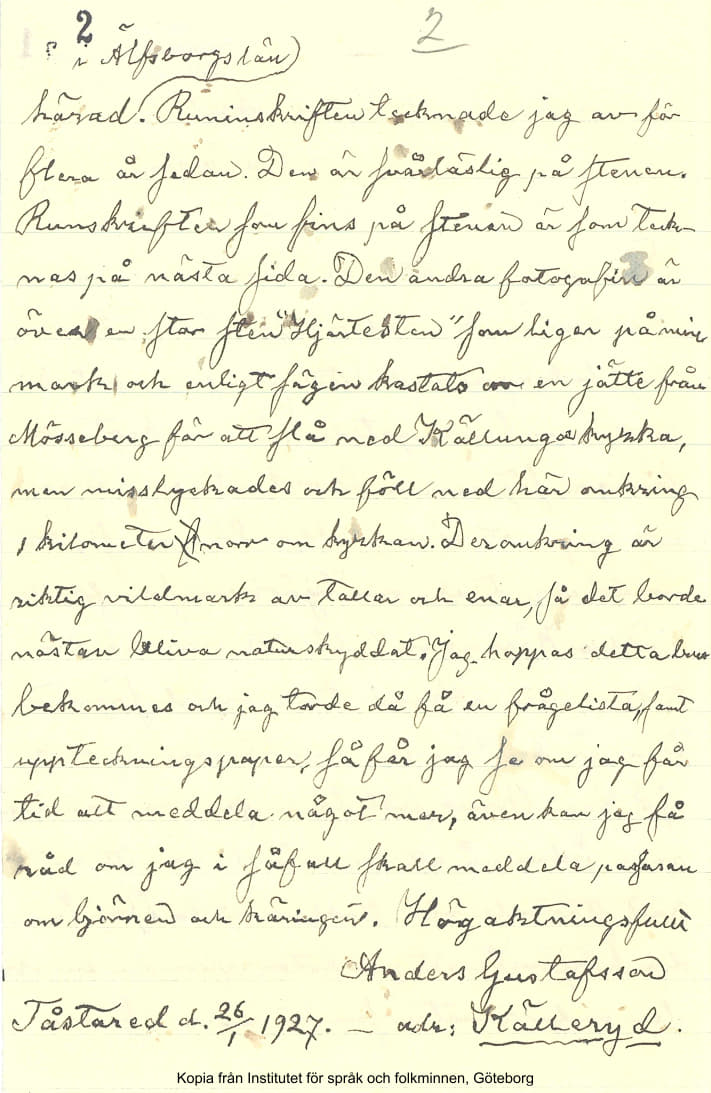 2
2
i Älfsborgslän)
härad. Runinskriften tecknade jag av för
flera år sedan. Den är svårläslig på stenen.
Runskriften som fins på stenen är som teck-
nas på nästa sida. Den andra fotografin är
över en stor sten "Hjärtesten" som liger på min
mark och enligt sägen kastats av en jätte från
Mösseberg för att slå ned Källunga kyrka,
men misslyckades och föll ned här omkring
1 kilometer norr om kyrkan. Deromkring är
riktig vildmark av tallar och enar, så det borde
nästan bliva naturskyddat. Jag hoppas detta
bekommes och jag torde då få en frågelista, samt
uppteckningspaper, så får jag se om jag får
tid att meddela något mer, även kan jag få
råd om jag i såfall skall meddela
om björnen och käringen. Högaktningsfullt
Anders Gustafsson
Tåstared d. 26/1 1927. — adr: Källeryd.
Kopia från Institutet för språk och folkminnen, Göteborg